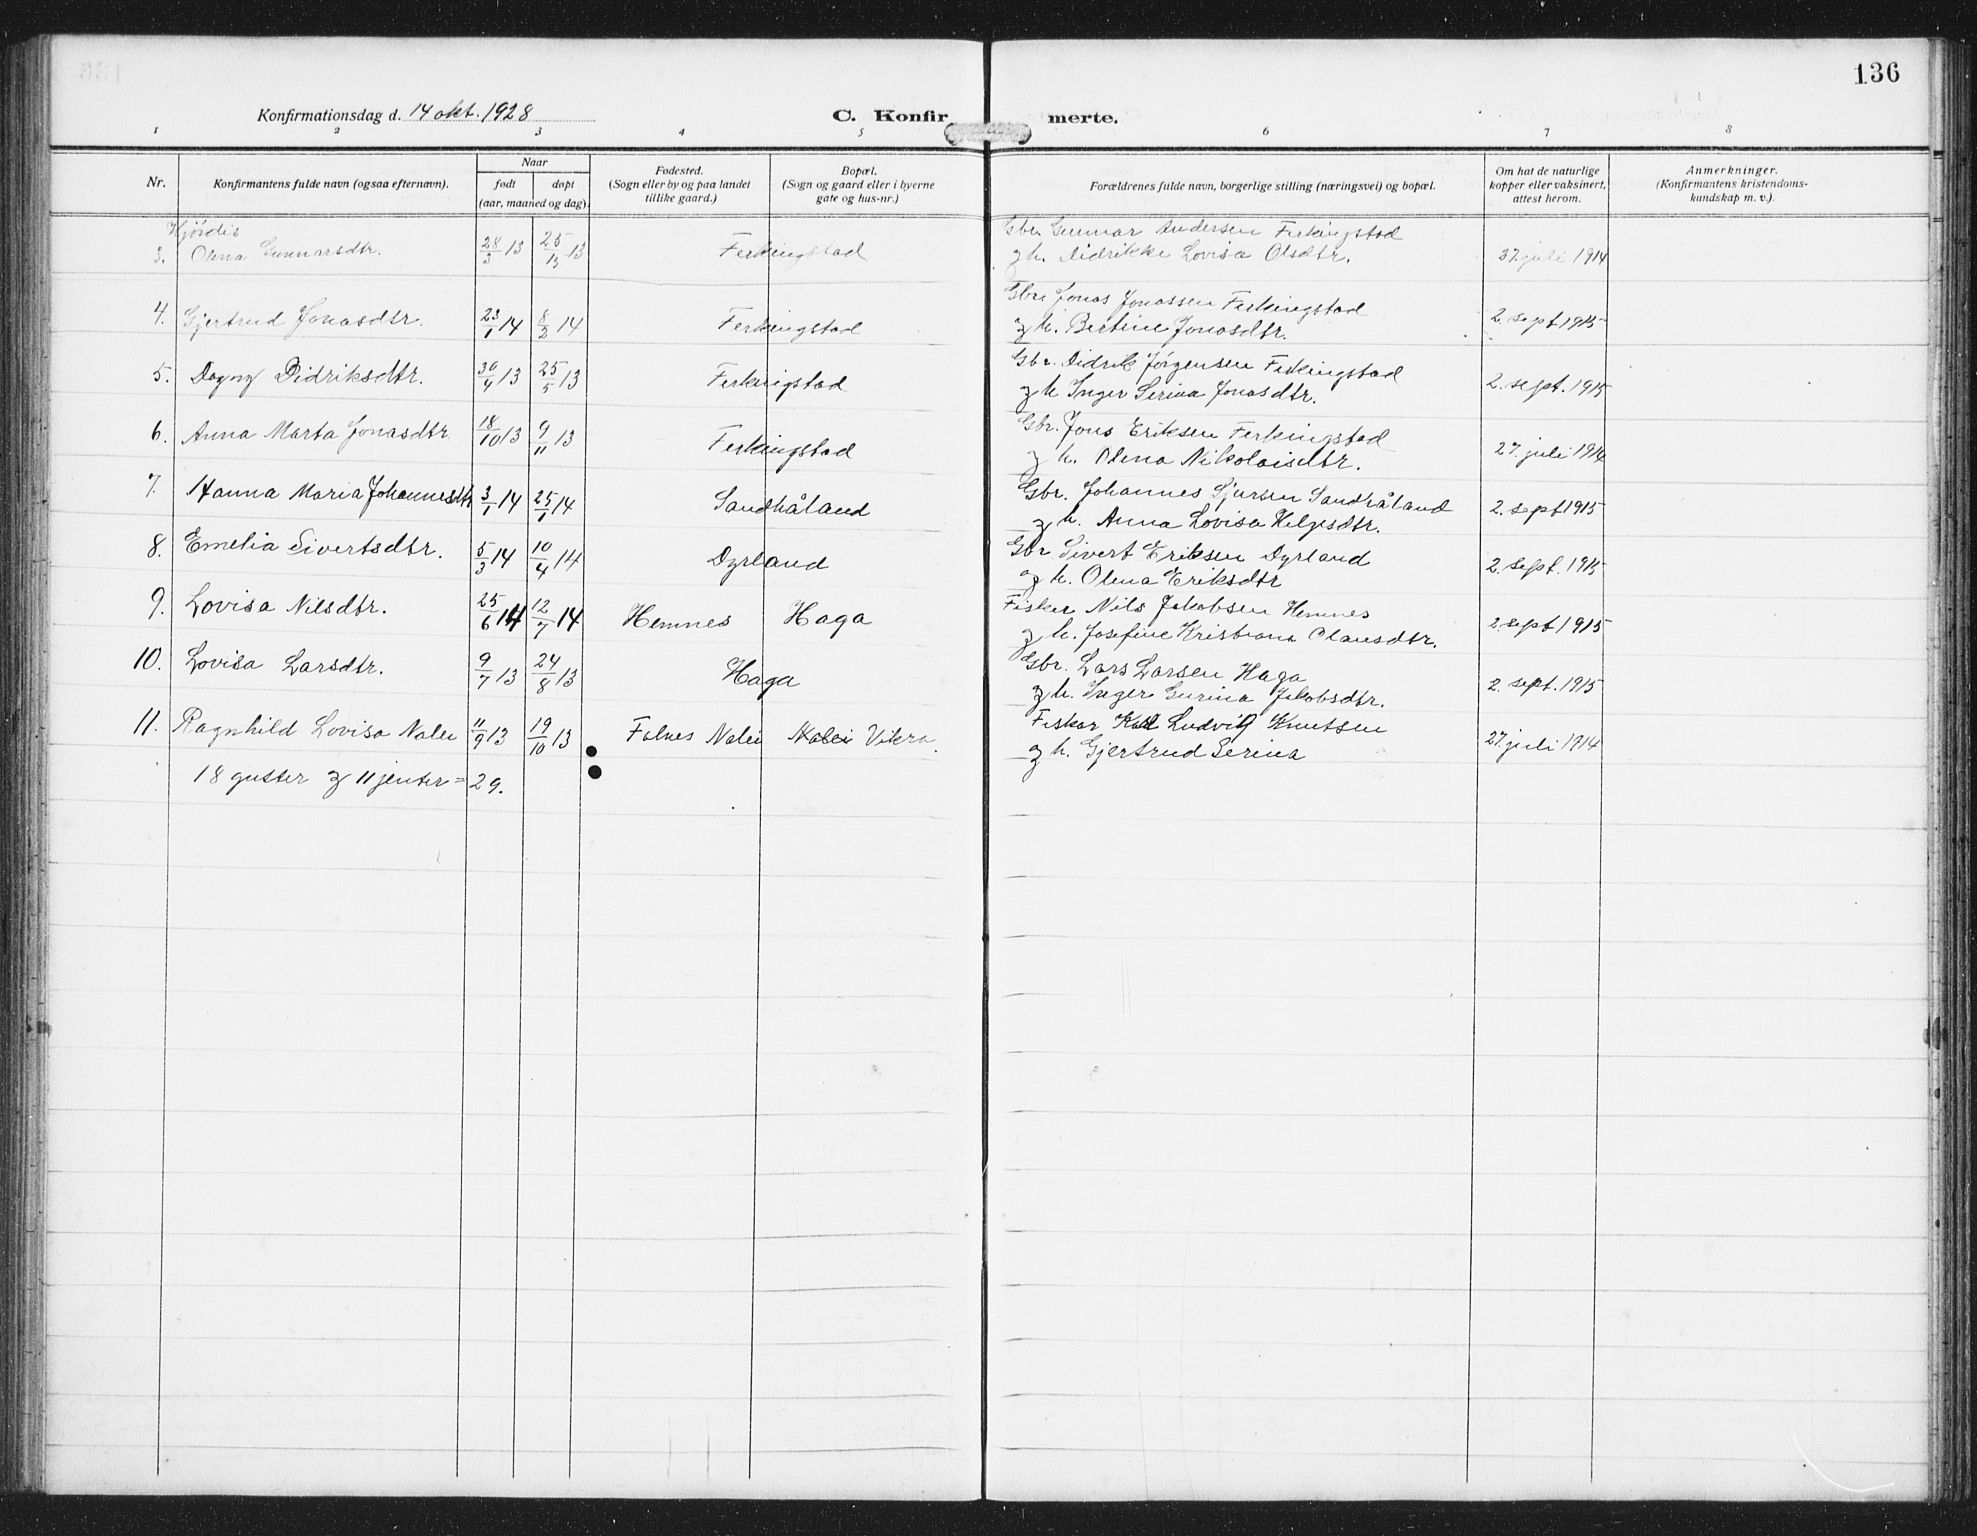 136
Konfirmationsdag d. 14 okt. 1928 C. Konfirmerte.
1 2 3 4 5 6 7 8
Nr. Konfirmantens fulde navn (ogsaa efternavn). Naar født døpt (aar, maaned og dag). Fødested. (Sogn eller by og paa landet tillike gaard.) Bopæl. (Sogn og gaard eller i byerne gate og hus-nr.) Forældrenes fulde navn, borgerlige stilling (næringsvei) og bopæl. Om hat de naturlige kopper eller vaksinert, attest herom. Anmerkninger. (Konfirmantens kristendoms-kundskap m. v.).
Hjördis Gbr. Gunnar Andersen Ferkingstad
3. Olena Gunnarsdtr. 28/3 13 25/ 13 Ferkingstad g h. Didrikke Lovisa Olsdtr. 27. juli 1914
Gbr. Jonas Jonassen Ferkingstad
4. Gjertrud Jonasdtr. 23/1 14 8/2 14 Ferkingstad g h. Bertine Jonasdtr. 2. sept 1915
Gbr. Didrik Jørgensen Ferkingstad
5. Dagny Didriksdtr. 30/4 13 25/5 13 Ferkingstad g h Inger Serina Jonasdtr. 2. sept. 1915
Gbr. Jons Eriksen Ferkingstad
6. Anna Marta Jonasdtr 18/10 13 9/11 13 Ferkingstad g h. Olena Nikolaisdtr. 27. juli 1914
Gbr. Johannes Sjursen Sandhåland
7. Hanna Maria Johannesdtr 3/1 14 25/1 14 Sandhåland g h. Anna Lovisa Helgesdtr. 2. sept 1915
Gbr Sivert Eriksen Dyrland
8. Emelia Sivertsdtr. 5/3 14 10/4 14 Dyrland g h. Olena Eriksdtr 2. sept. 1915
Fisker Nils Jakobsen Hemnes
9. Lovisa Nilsdtr. 25/6 14 12/7 14 Hemnes Haga g h. Josefine Kristiana Olausdtr. 2. sept 1915
Gbr. Lars Larsen Haga
10. Lovisa Larsdtr. 9/7 13 24/8 13 Haga g h. Inger Gurina Jakobsdtr. 2. sept. 1915
Fisker Karl Ludvig Knutsen
11. Ragnhild Lovisa Nalei 11/9 13 19/10 13 Falnes Nalei Nalei Vikra. g h. Gjertrud Serina 27. juli 1914
18 gutter g 11 jenter = 29.